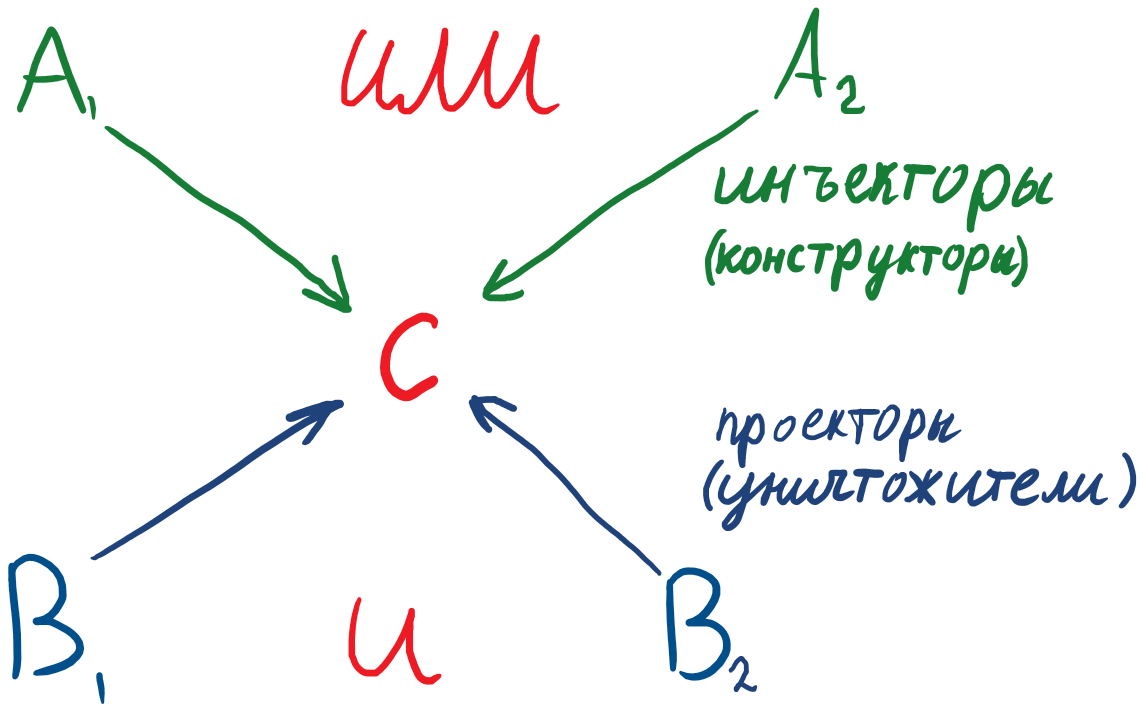 A₁ или A₂
инъекторы
(конструкторы)
C
проекторы
(уничтожители)
B₁ и B₂